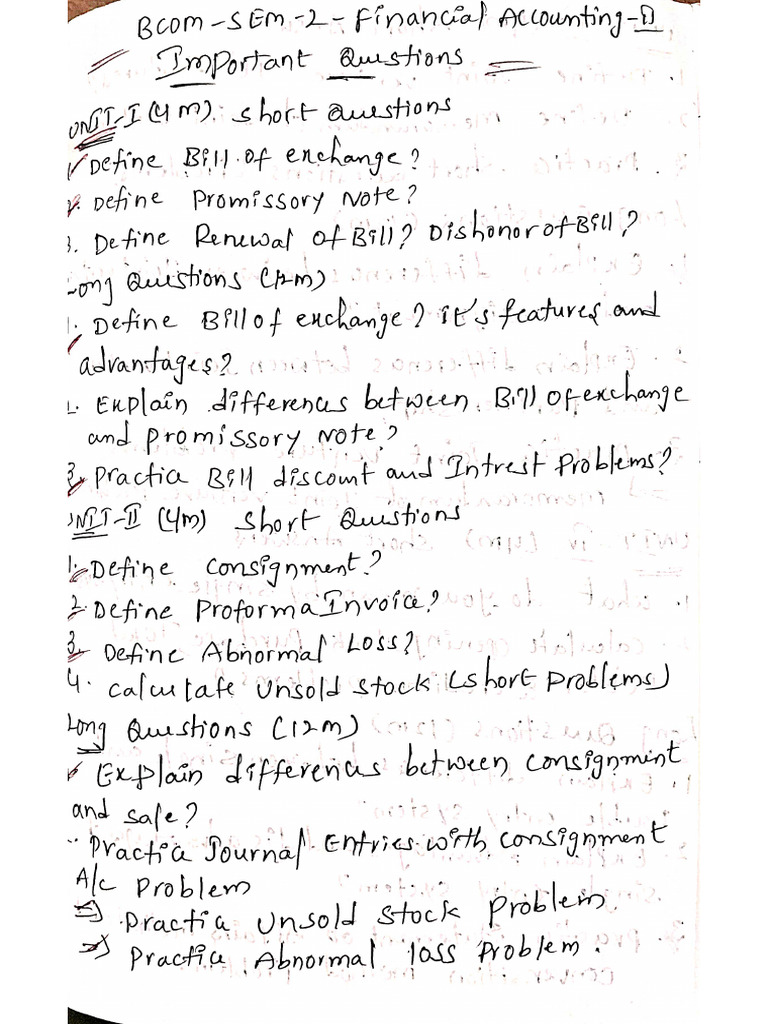 BCOM-SEM-2-Financial Accounting-II
Important Questions
UNIT-I (4m) short Questions
1. Define Bill of exchange?
2. Define Promissory Note?
3. Define Renewal of Bill? Dishonor of Bill?
Long Questions (12m)
1. Define Bill of exchange? it's features and
advantages?
2. Explain differences between Bill of exchange
and promissory Note?
3. Practice Bill discount and Intrest Problems?
UNIT-II (4m) Short Questions
1. Define consignment?
2. Define Proforma Invoice?
3. Define Abnormal Loss?
4. calcutate unsold stock (short Problems)
Long Questions (12m)
Explain differences between consignment
and sale?
Practice Journal Entries with consignment
A/c Problem
=> Practice unsold stock Problem.
=> Practice Abnormal loss Problem.